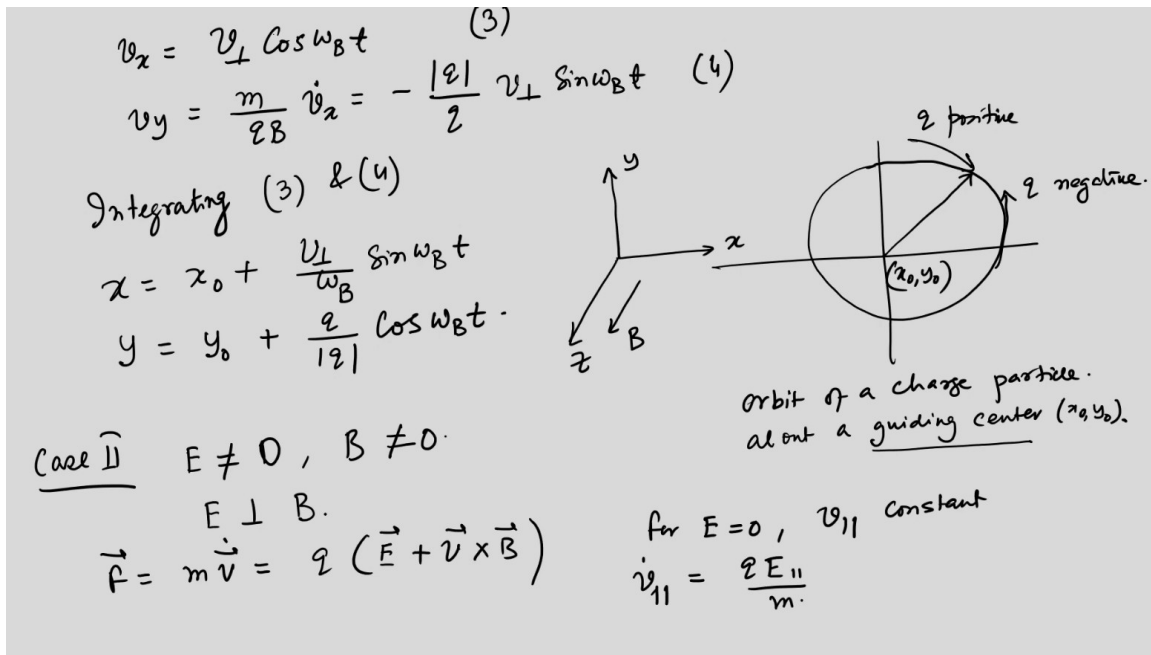 vₓ = v⊥ Cos ω_B t (3)
v_y = m/qB v̇ₓ = - |q|/q v⊥ Sin ω_B t (4)
Integrating (3) & (4)
x = x₀ + v⊥/ω_B Sin ω_B t
y = y₀ + q/|q| Cos ω_B t.
y
x
z
B
q positive
q negative.
(x₀, y₀)
orbit of a charge particle.
about a guiding center (x₀, y₀).
Case II E ≠ 0, B ≠ 0.
E ⊥ B.
F⃗ = m v⃗̇ = q (E⃗ + v⃗ × B⃗)
for E = 0, v∥ constant
v̇∥ = qE∥/m.